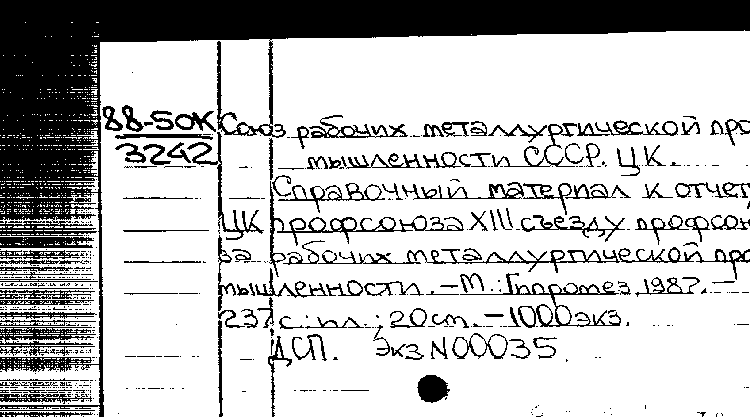 88-5ОК Союз рабочих металлургической про
3242 мышленности СССР. ЦК.
Справочный материал к отчет
ЦК профсоюза XIII съезду профсою
за рабочих металлургической про
мышленности. – М.: Гипромез, 1987. –
237 с.: ил.; 20 см. – 1000 экз.
ДСП. Экз N00035